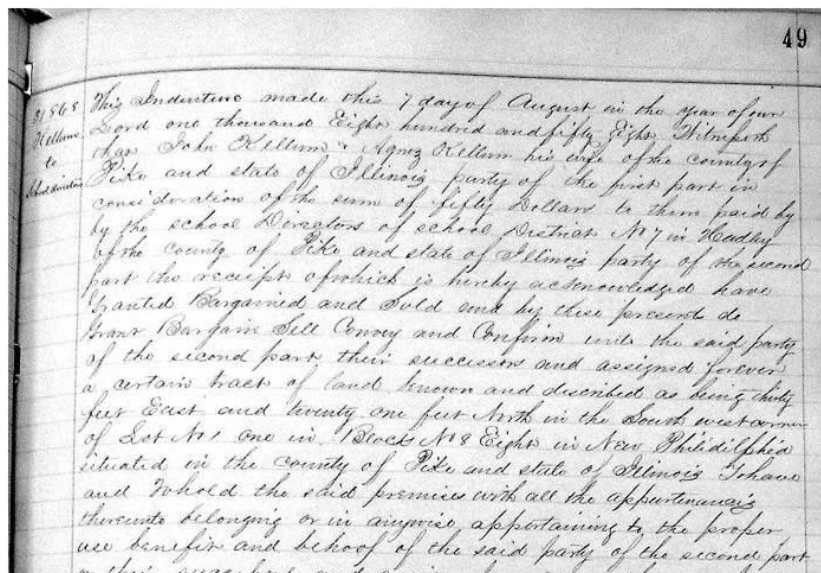 49
31568
Kellum
to
School directors
This Indenture made this 7 day of August in the year of our
Lord one thousand Eight hundred and fifty Eight Witnesseth
that John Kellum & Agnez Kellum his wife of the county of
Pike and state of Illinois party of the first part in
consideration of the sum of fifty Dollars to them paid by
by the school Directors of school District No 7 in Hadley
of the county of Pike and state of Illinois party of the second
part the receipt of which is hereby acknowledged have
Granted Bargained and Sold and by these present do
Grant Bargain Sell Convey and Confirm unto the said party
of the second part their successors and assigned forever
a certain tract of land known and discribed as being thirty
feet East and twenty one feet North in the South west corner
of Lot No 1 one in Block No 8 Eight in New Philidelphia
situated in the county of Pike and state of Illinois To have
and To hold the said premises with all the appurtenancis
thereunto belonging or in anywise appertaining to the proper
use benefit and behoof of the said party of the second part